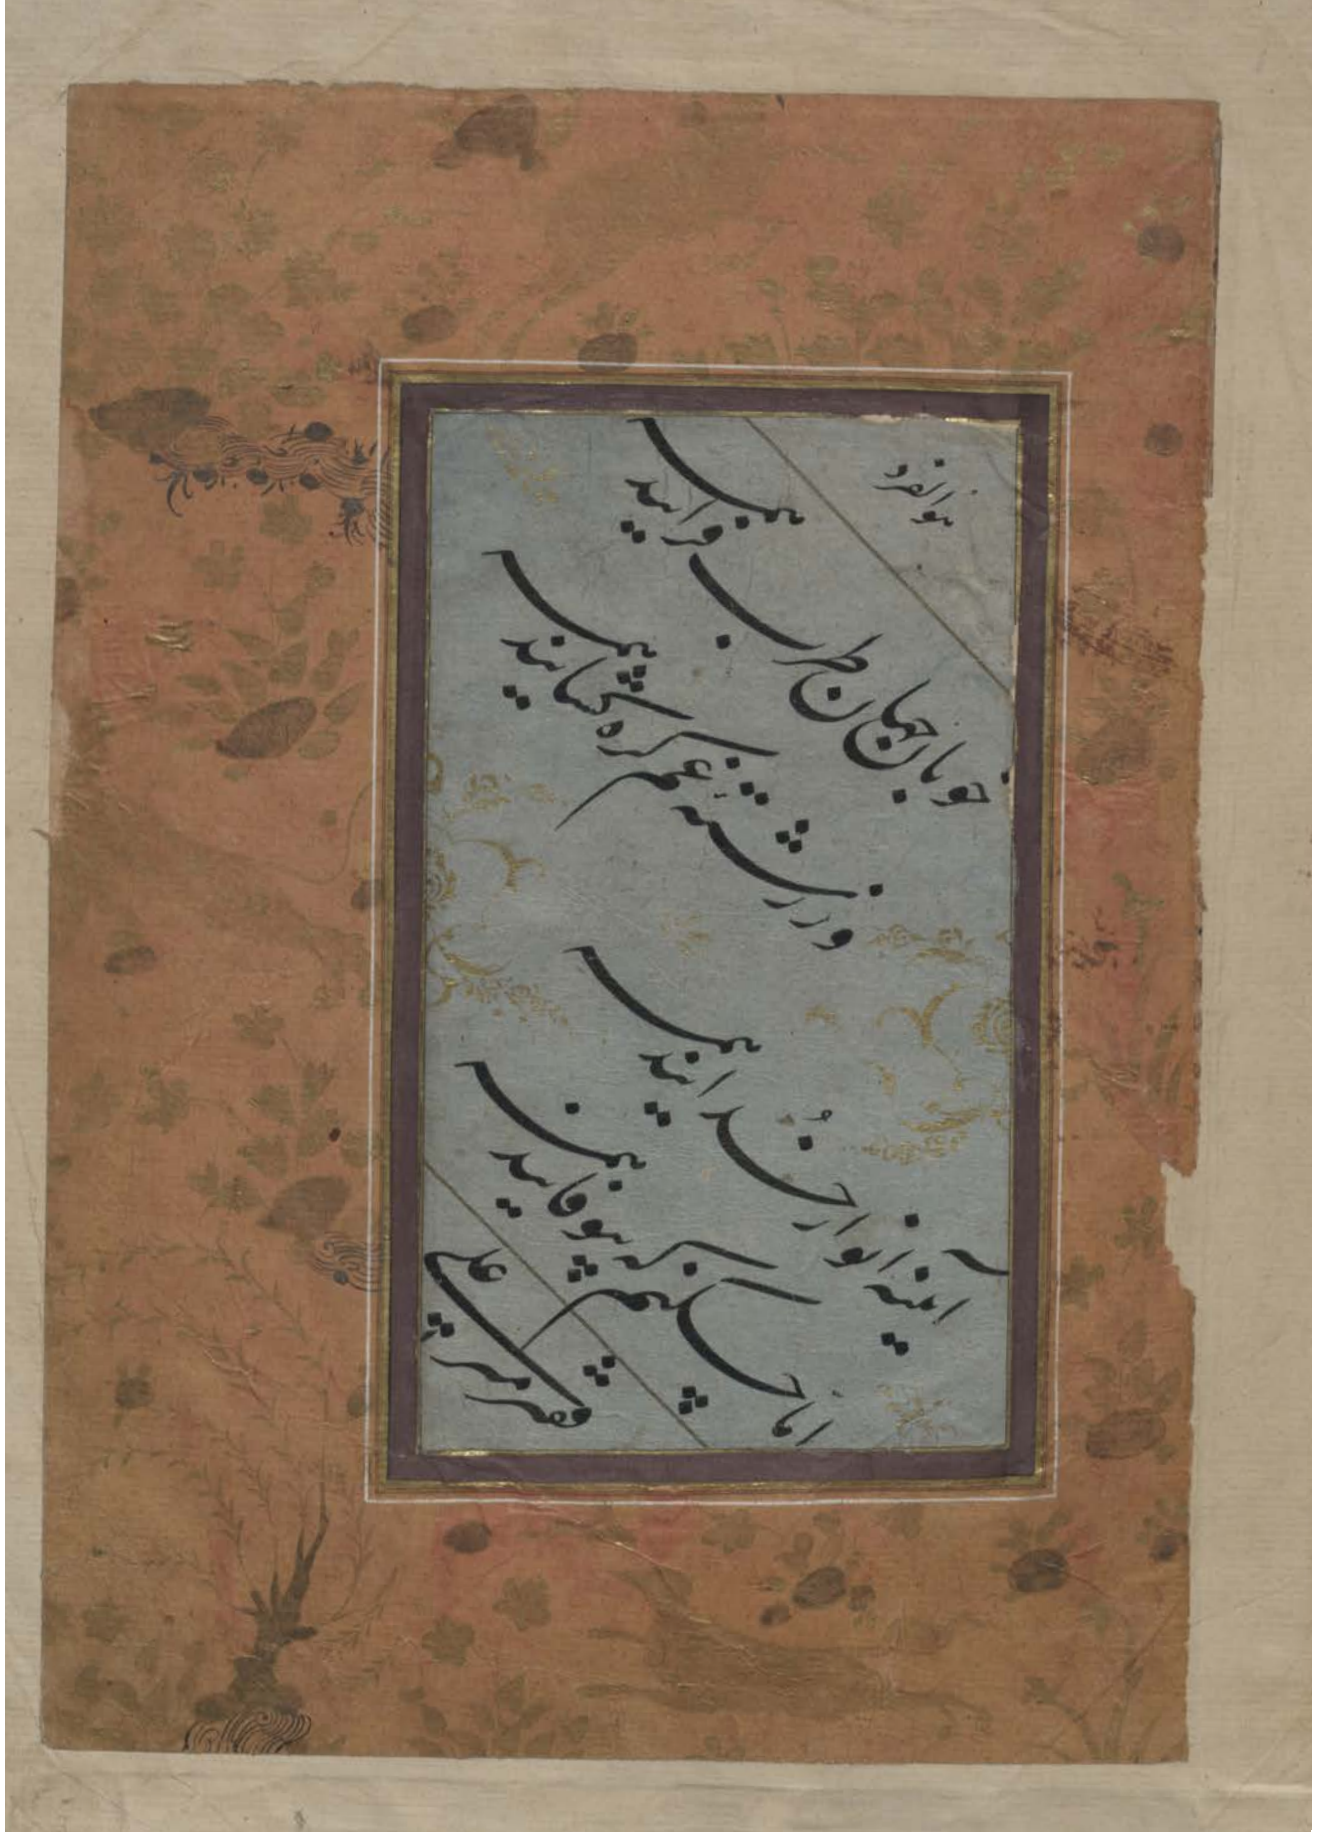 هو الفرد
خوبان جهان طرب فزایند همه
وز رشتهٔ غم گره گشایند همه
آیینه انوار خُدایند همه
اما چکنم که بیوفایند همه
فقیر میر علی